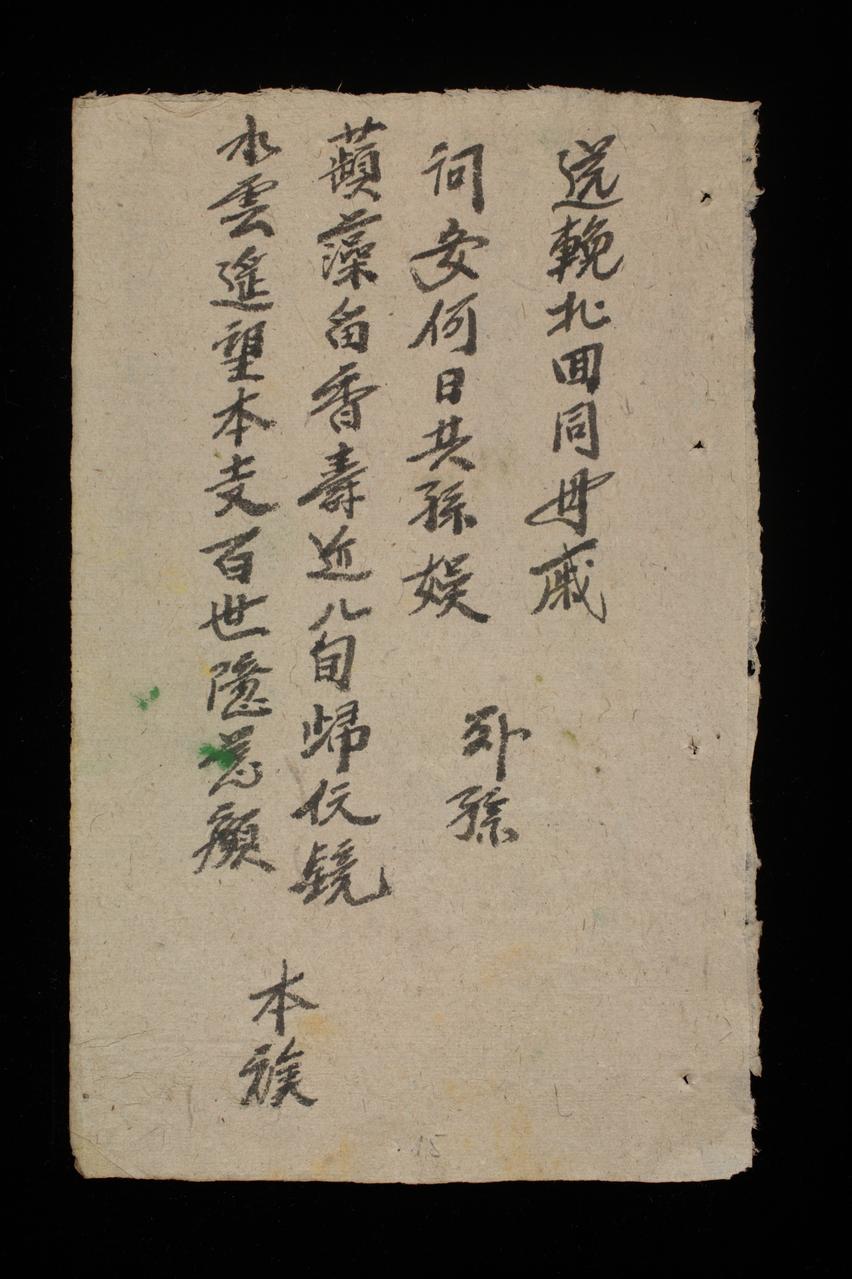 送輓北回同母戚
问安何日共孫娱
外孫
蘋藻畄香壽近八旬歸仸鏡
水雲遙望本支百世隱慈顔
本族